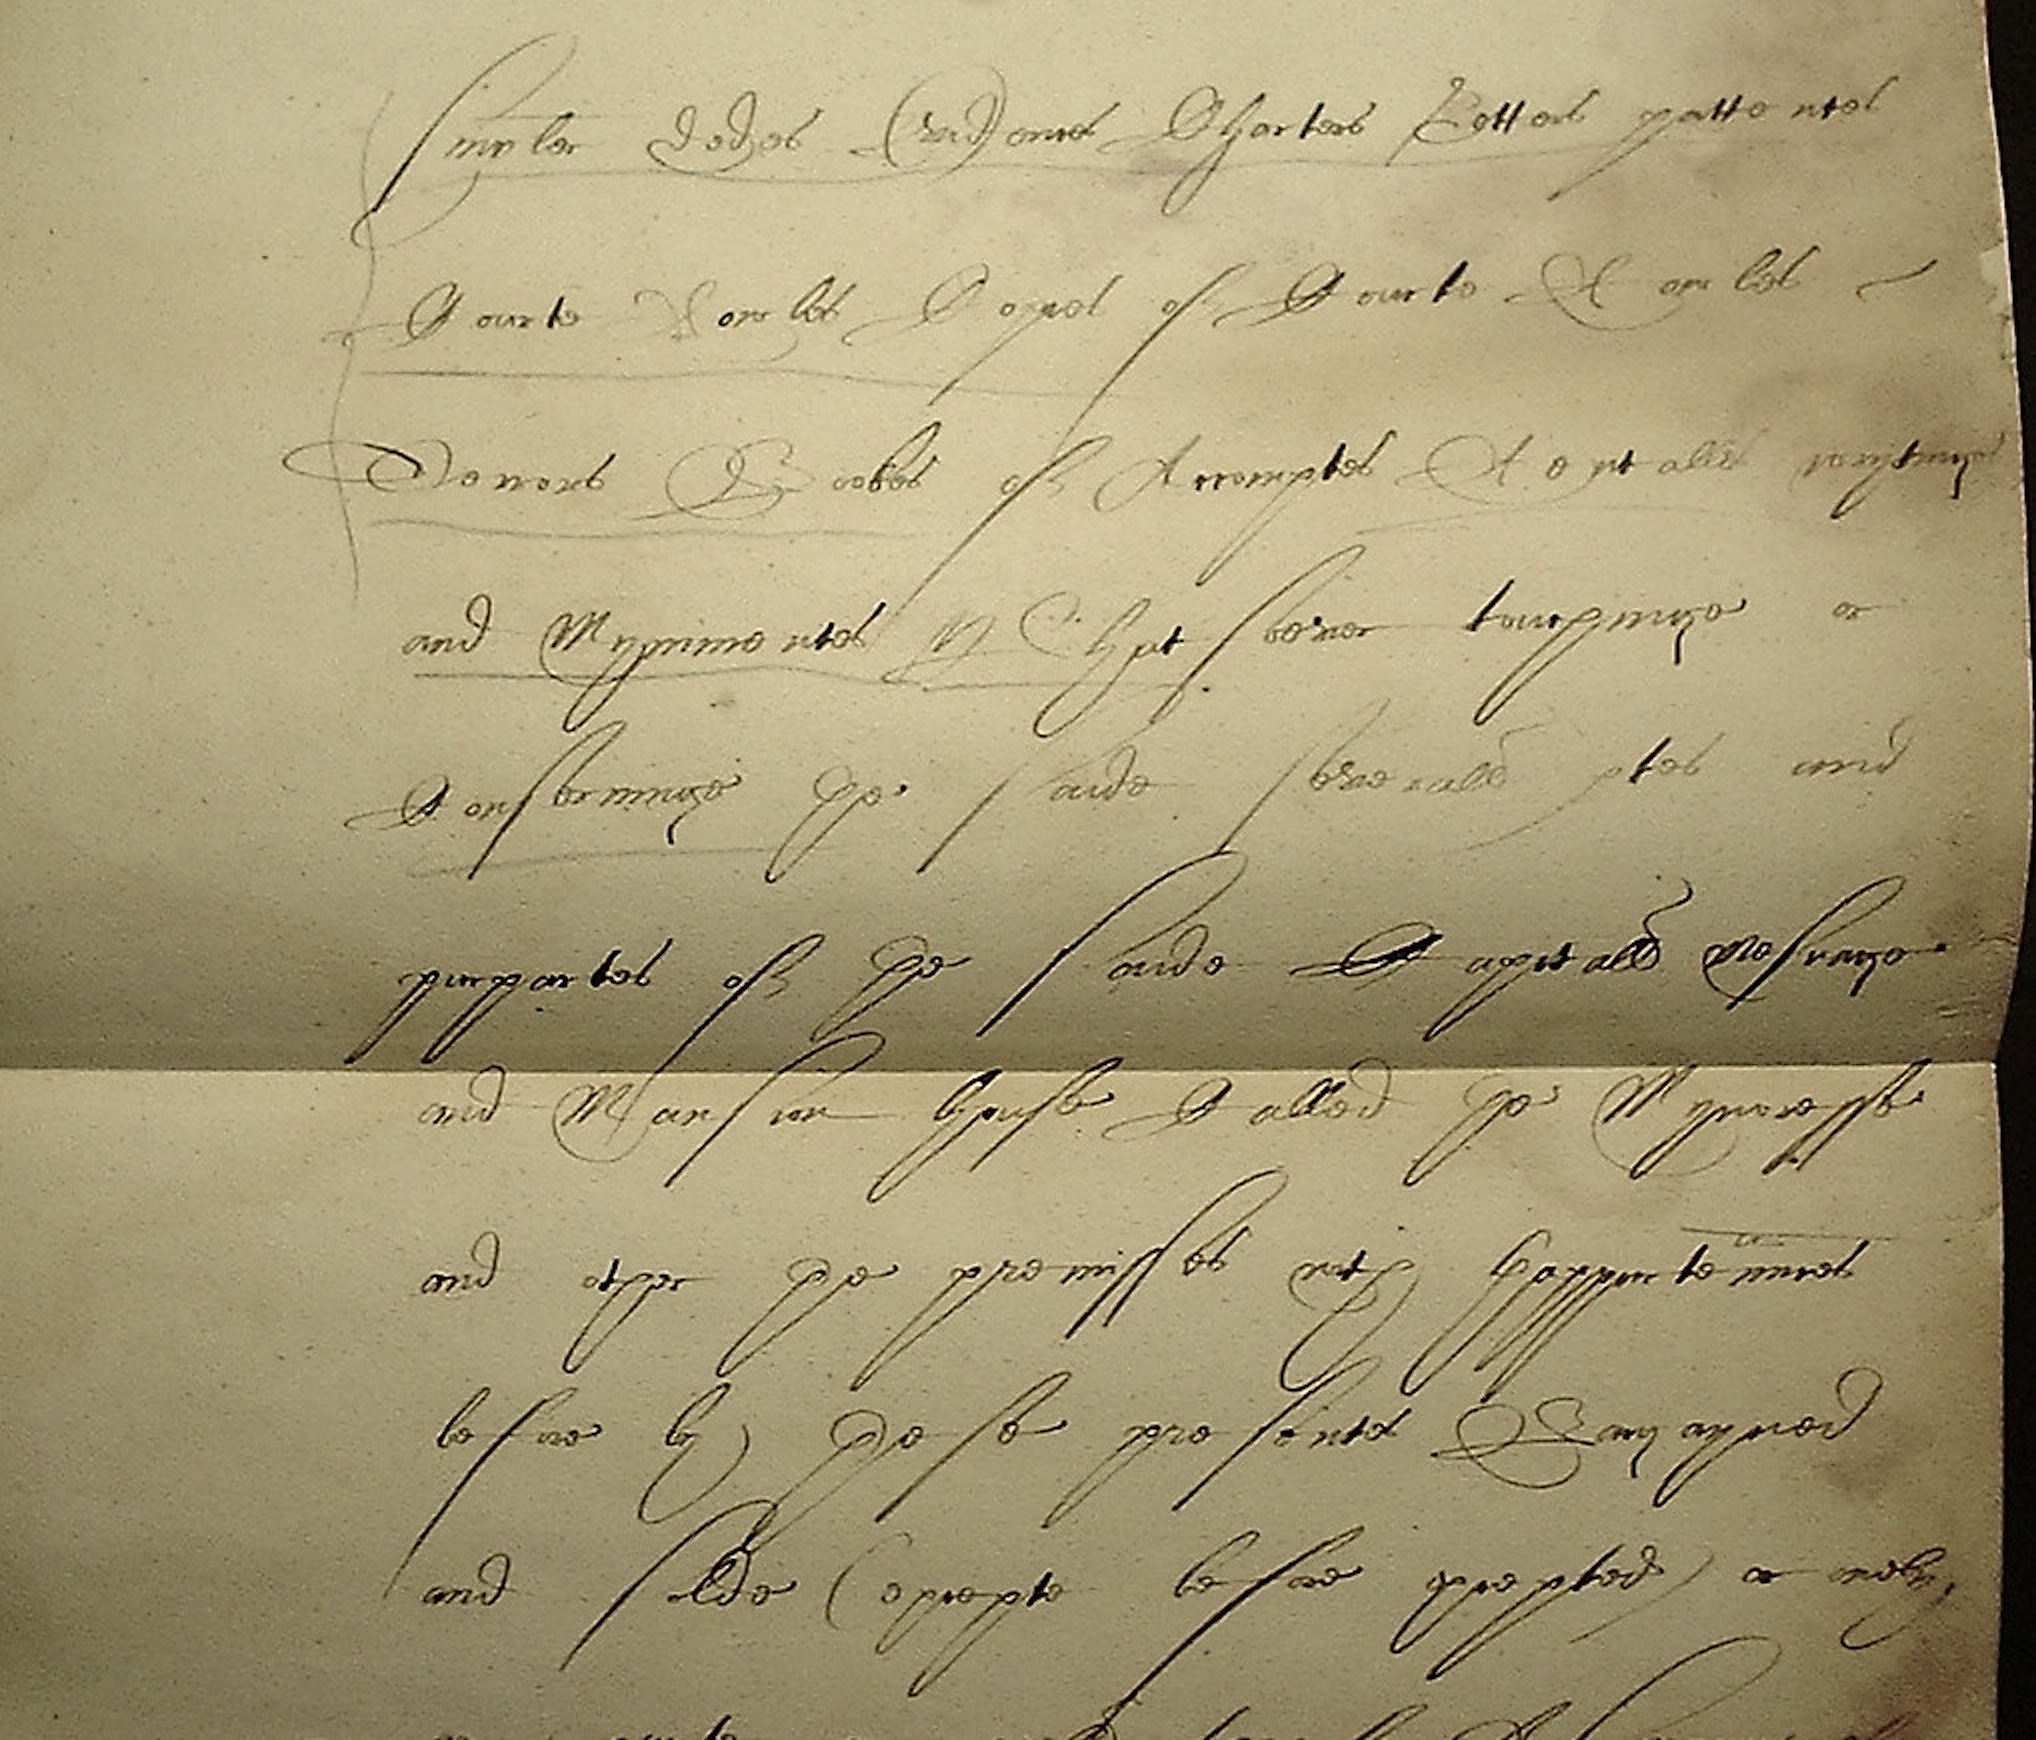 singler dedes Evidences Charters Letters pattentes
Courte Rowles Copies of Courte Rowles
Terrors Bookes of Accompte Rentalls wrytinge
and Mynimentes Whatsoever touchinge or
Concerninge the saide severall ptes and
purpartes of the saide Capitall mesuage
and Mansion house Called the Mynoresse
and other the premisses with thappurtenances
before by these presentes Bargayned
and solde (excepte before excepted) or onely